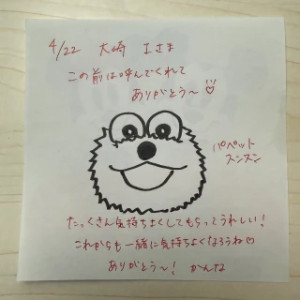 4/22 大崎 Iさま
この前は呼んでくれて
ありがとう〜♡
パペット
スンスン
たっくさん気持ちよくしてもらってうれしい!
これからも一緒に気持ちよくなろうね♡
ありがとう〜! かんな